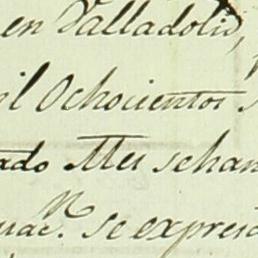 en Valladolid,
il Ochocientos
ado Mes se han
uac.<sup>n</sup> se expresa